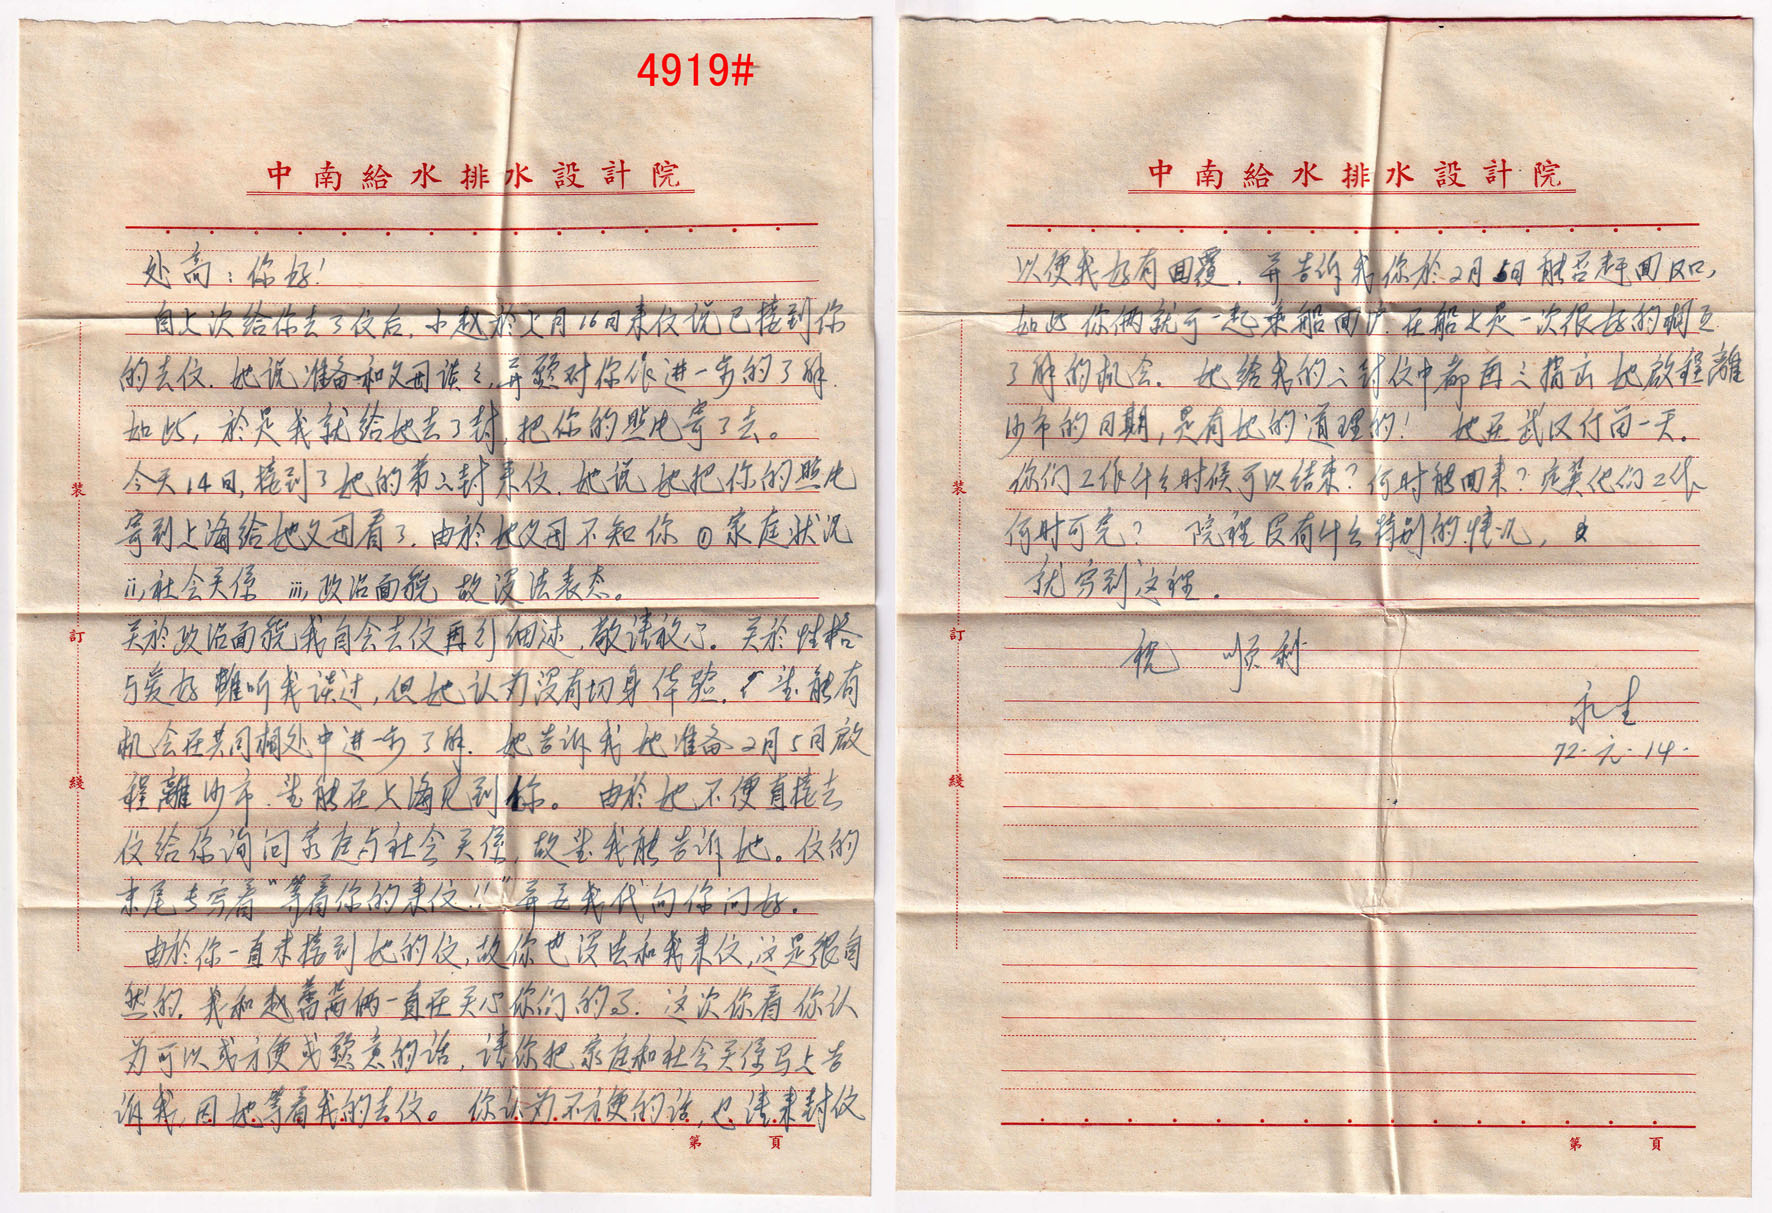 4919#
中南給水排水設計院
处高：你好！
自上次给你去了信后，小赵於上月16日来信说已接到你
的去信．她说准备和父母谈之，并愿对你作进一步的了解．
如此，於是我就给她去了封，把你的照片寄了去。
今天14日，接到了她的第二封来信．她说她把你的照片
寄到上海给她父母看了．由於她父母不知你①家庭状况
ii，社会关係 iii，政治面貌 故没法表态。
关於政治面貌我自会去信再细述，敬请放心。关於性格
与爱好雖听我谈过，但她认为没有切身体验．望能有
机会在共同相处中进一步了解．她告诉我她准备2月5日啟
程離沙市．望能在上海见到你。 由於她不便直接去
信给你询问家庭与社会关係，故望我能告诉她。信的
末尾专写着“等着你的来信！！”并互我代向你问好．
由於你一直未接到她的信，故你也没法和我来信，这是很自
然的．我和赵俩一直在关心你们的了．这次你看你认
为可以或方便或愿意的话，请你把家庭和社会关係马上告
诉我，因她等着我的去信。你认为不方便的话，也请来封信
装
訂
綫
第 頁
中南給水排水設計院
以便我好有回覆．并告诉我你於2月5日能否赶回汉口，
如此你俩就可一起乘船回沪．在船上是一次很好的相互
了解的机会．她给我的二封信中都再三指出她啟程離
沙市的日期，是有她的道理的！ 她在武汉付留一天。
你们工作什么时候可以结束？何时能回来？英他们工作
何时可完？ 院裡没有什么特别的情况，
就写到这裡．
祝 顺利
永生
72．元．14．
装
訂
綫
第 頁